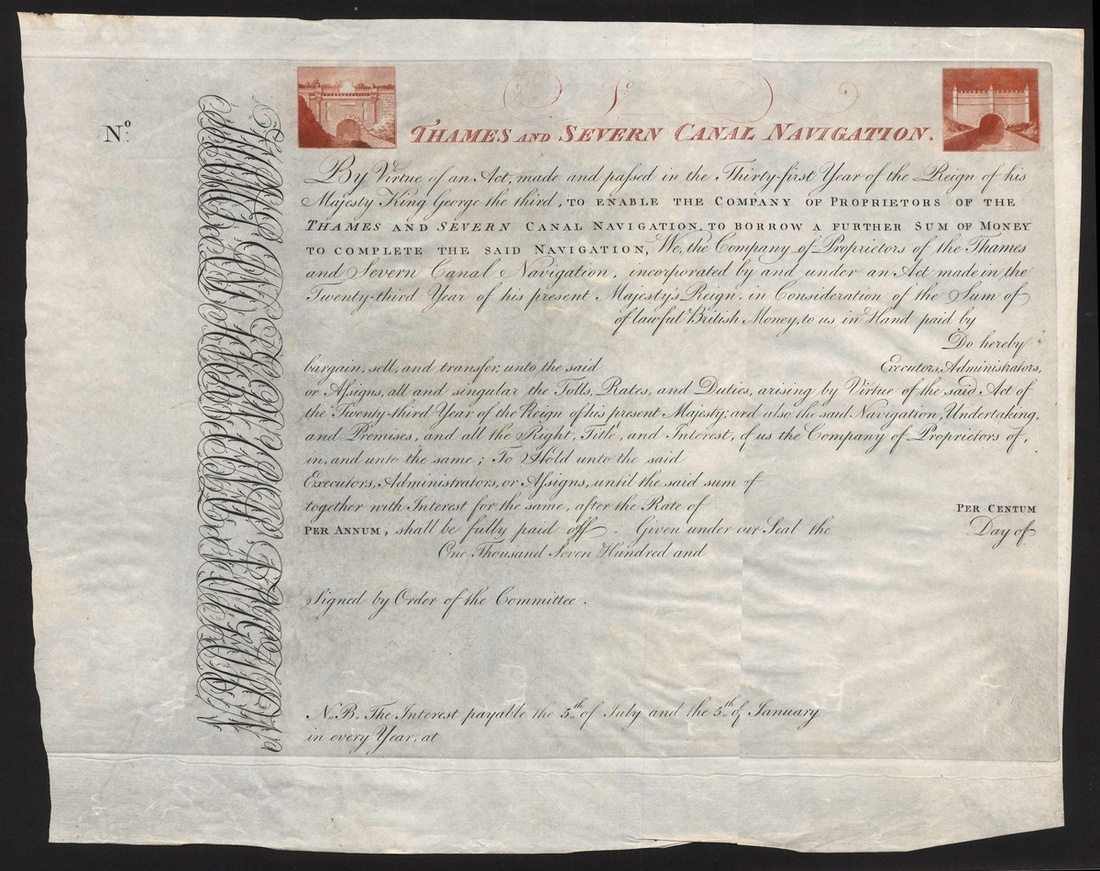 No.
No.
THAMES AND SEVERN CANAL NAVIGATION.
By Virtue of an Act, made and passed in the Thirty-first Year of the Reign of his
Majesty King George the third, TO ENABLE THE COMPANY OF PROPRIETORS OF THE
THAMES AND SEVERN CANAL NAVIGATION, TO BORROW A FURTHER SUM OF MONEY
TO COMPLETE THE SAID NAVIGATION, We, the Company of Proprietors of the Thames
and Severn Canal Navigation, incorporated by and under an Act made in the
Twenty-third Year of his present Majesty's Reign, in Consideration of the Sum of
of lawful British Money, to us in Hand paid by
Do hereby
bargain, sell, and transfer, unto the said Executors, Administrators,
or Assigns, all and singular the Tolls, Rates, and Duties, arising by Virtue of the said Act of
the Twenty-third Year of the Reign of his present Majesty; and also the said Navigation, Undertaking,
and Premises, and all the Right, Title, and Interest, of us the Company of Proprietors of,
in, and unto the same; To Hold unto the said
Executors, Administrators, or Assigns, until the said sum of
together with Interest for the same, after the Rate of PER CENTUM
PER ANNUM, shall be fully paid off. Given under our Seal the Day of
One Thousand Seven Hundred and
Signed by Order of the Committee.
N.B. The Interest payable the 5th of July and the 5th of January
in every Year, at